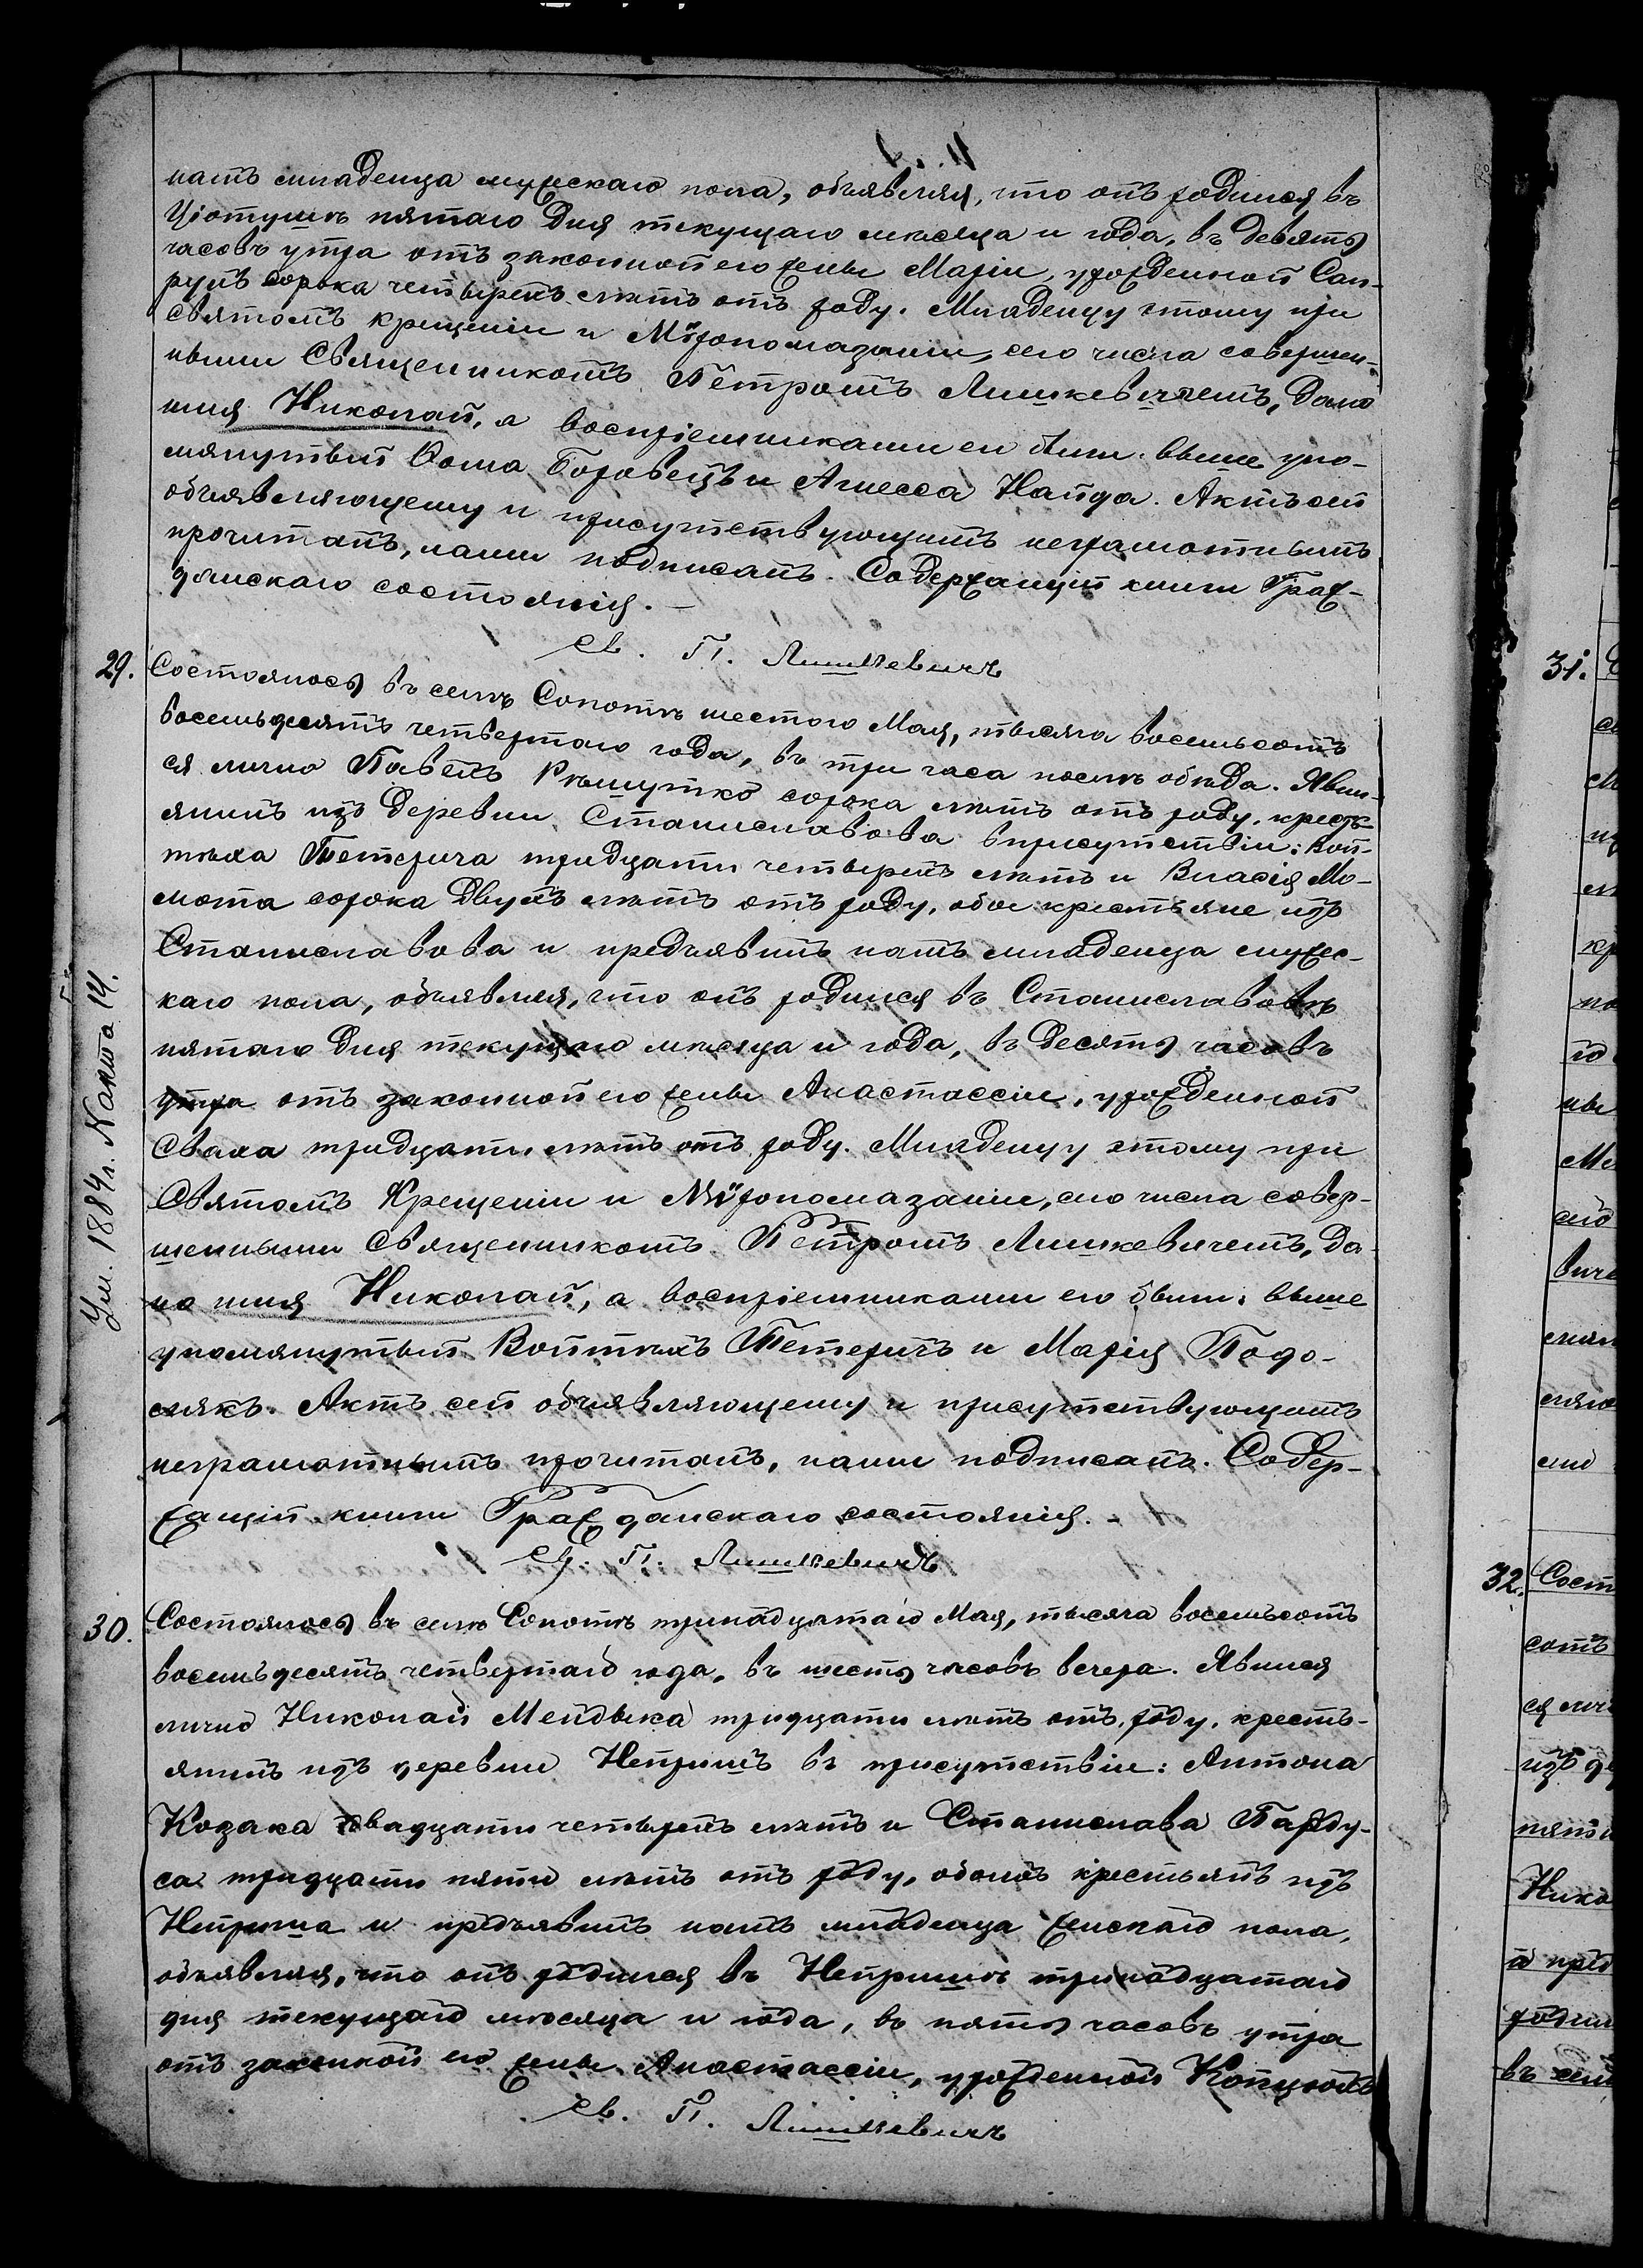 намъ младенца мужескаго пола, объявляя, что онъ родился въ
Ціотушѣ пятаго дня текущаго мѣсяца и года, въ девять
часовъ утра отъ законной его жены Маріи, урожденной Сам-
рупъ сорока четырехъ лѣтъ отъ роду. Младенцу этому при
Святомъ крещеніи и Мѵропомазаніи, сего числа совершен-
ными Священникомъ Петромъ Лишкевичемъ, дано
имя Николай, а воспріемниками ея были: выше упо-
мянутый Ѳома Боровецъ и Агнесса Найда. Актъ сей
объявляющему и присутствующимъ неграмотнымъ
прочитанъ, нами подписанъ. Содержащій книги Граж-
данскаго состоянія. —
Св. П. Лишкевичъ
29. Состоялось въ селѣ Сопотѣ шестого Мая, тысяча восемьсотъ
восемьдесятъ четвертаго года, въ три часа послѣ обѣда. Явил-
ся лично Павелъ Рѣшутко сорока лѣтъ отъ роду, кресть-
янинъ изъ деревни Станиславова вприсутствіи: Вой-
тѣха Тетерича тридцати четырехъ лѣтъ и Власія Мо-
лота сорока двухъ лѣтъ отъ роду, обое крестьяне изъ
Станиславова и предъявилъ намъ младенца мужес-
каго пола, объявляя, что онъ родился въ Станиславовѣ
пятаго дня текущаго мѣсяца и года, въ десять часовъ
утра отъ законной его жены Анастассіи, урожденной
Сваха тридцати лѣтъ отъ роду. Младенцу этому при
Святомъ Крещеніи и Мѵропомазаніи, сего числа совер-
шенными Священникомъ Петромъ Лишкевичемъ, да-
но имя Николай, а воспріемниками его были: выше
упомянутый Войтѣхъ Тетеричъ и Марія Подо-
лякъ. Актъ сей объявляющему и присутствующимъ
неграмотнымъ прочитанъ, нами подписанъ. Содер-
жащій книги Гражданскаго состоянія. —
Св. П. Лишкевичъ
Ум. 1884 г. N акта 14.
30. Состоялось въ селѣ Сопотѣ тринадцатаго Мая, тысяча восемьсотъ
восемьдесятъ четвертаго года, въ шесть часовъ вечера. Явился
лично Николай Мейдыка тридцати лѣтъ отъ роду, кресть-
янинъ изъ деревни Непришъ въ присутствіи: Антона
Козака двадцати четырехъ лѣтъ и Станислава Парду-
са тридцати пяти лѣтъ отъ роду, обоихъ крестьянъ изъ
Неприша и предъявилъ намъ младенца женскаго пола,
объявляя, что онъ родился въ Непришѣ тринадцатаго
дня текущаго мѣсяца и года, въ пять часовъ утра
отъ законной его жены Анастассіи, урожденной Копцюхъ
Св. П. Лишкевичъ
31.
32. Сост
сотъ
изъ де
Нико